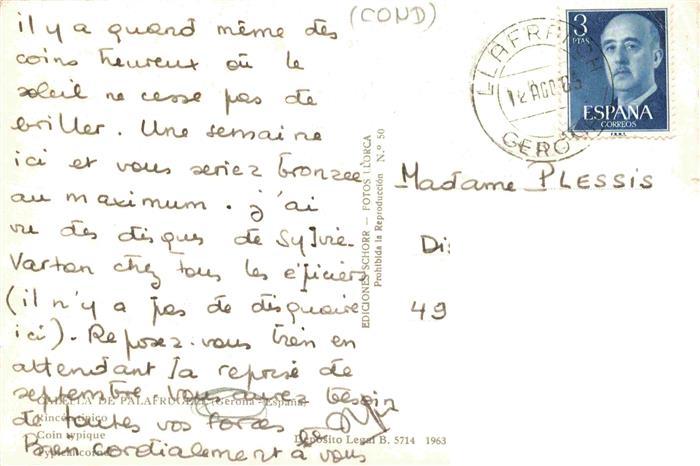 (COND)
il y a quand même des
coins heureux où le
soleil ne cesse pas de
briller. Une semaine
ici et vous seriez bronzée
au maximum. J'ai
vu des disques de Sylvie-
Vartan chez tous les épiciers
(il n'y a pas de disquaire
ici). Reposez-vous bien en
attendant la reprise de
septembre vous aurez besoin
de toutes vos forces
Bien cordialement à vous
CALELLA DE PALAFRUGELL (Gerona - España)
Rincón típico
Coin typique
Typical corner
Depósito Legal B. 5714 1963
EDICIONES SCHORR — FOTOS LLORCA
Prohibida la Reproducción N.º 50
LLAFRANCH
12 AGO 63
GERONA
3
PTAS
ESPAÑA
CORREOS
F.N.M.T.
Madame PLESSIS
49